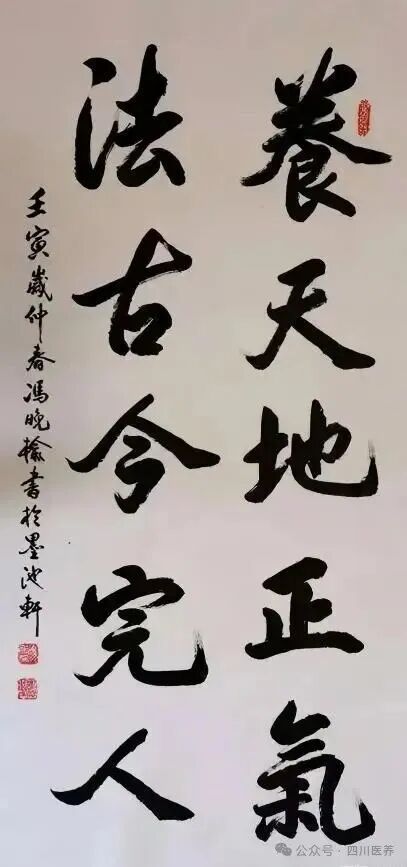 養天地正氣
法古今完人
壬寅歲仲春馮晚榆書於墨池軒
公众号·四川医养